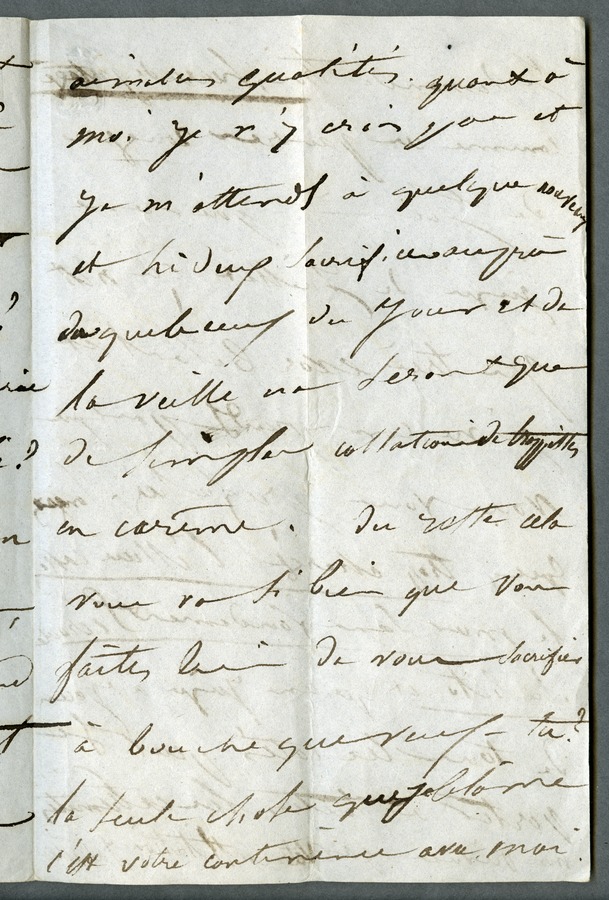 aimables qualités. quant à
moi je n'y crois pas et
je m'attends à quelque nouveau
et hideux sacrifice auprès
duquel ceux du jour et de
la veille ne seront que
de simples collations de
en carême. Du reste cela
vous va si bien que vous
faites bien de vous sacrifier
à bouche que veux-tu?
la seule chose que je blâme
c'est votre contenance avec moi.